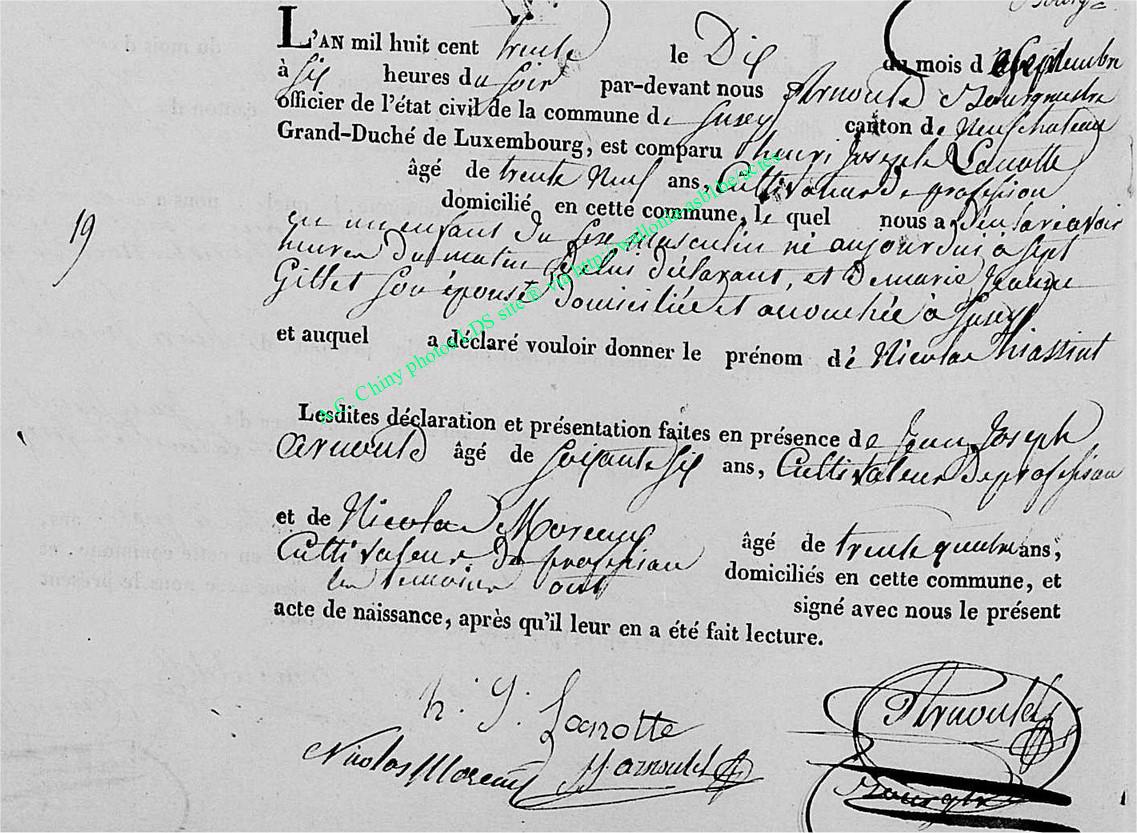 L'AN mil huit cent trente le Dix du mois de Septembre
à Six heures du soir par-devant nous Arnould Bourgmestre
officier de l'état civil de la commune de Suxy canton de Neufchateau
Grand-Duché de Luxembourg, est comparu henri Joseph Lanotte
âgé de trente Neuf ans, Cultivateur De profession
domicilié en cette commune, le quel nous a déclaré avoir
eu un enfant du sexe masculin né aujourdui a Sept
heures du matin de lui déclarant, et De marie Jeanne
Gillet Son épouse Domiciliée et accouchée a Suxy
19
et auquel a déclaré vouloir donner le prénom de Nicolas hiassint
Lesdites déclaration et présentation faites en présence de Jean Joseph
arnould âgé de Soixante Six ans, Cultivateur De profession
et de Nicolas Moreaux âgé de trente quatre ans,
Cultivateur De profession domiciliés en cette commune, et
les temoins ont signé avec nous le présent
acte de naissance, après qu'il leur en a été fait lecture.
h. J. Lanotte
Arnould
Nicolas Moreaux JJ arnould
A.C. Chiny photos LDS site® via http://wallonia-asbl.be/actes